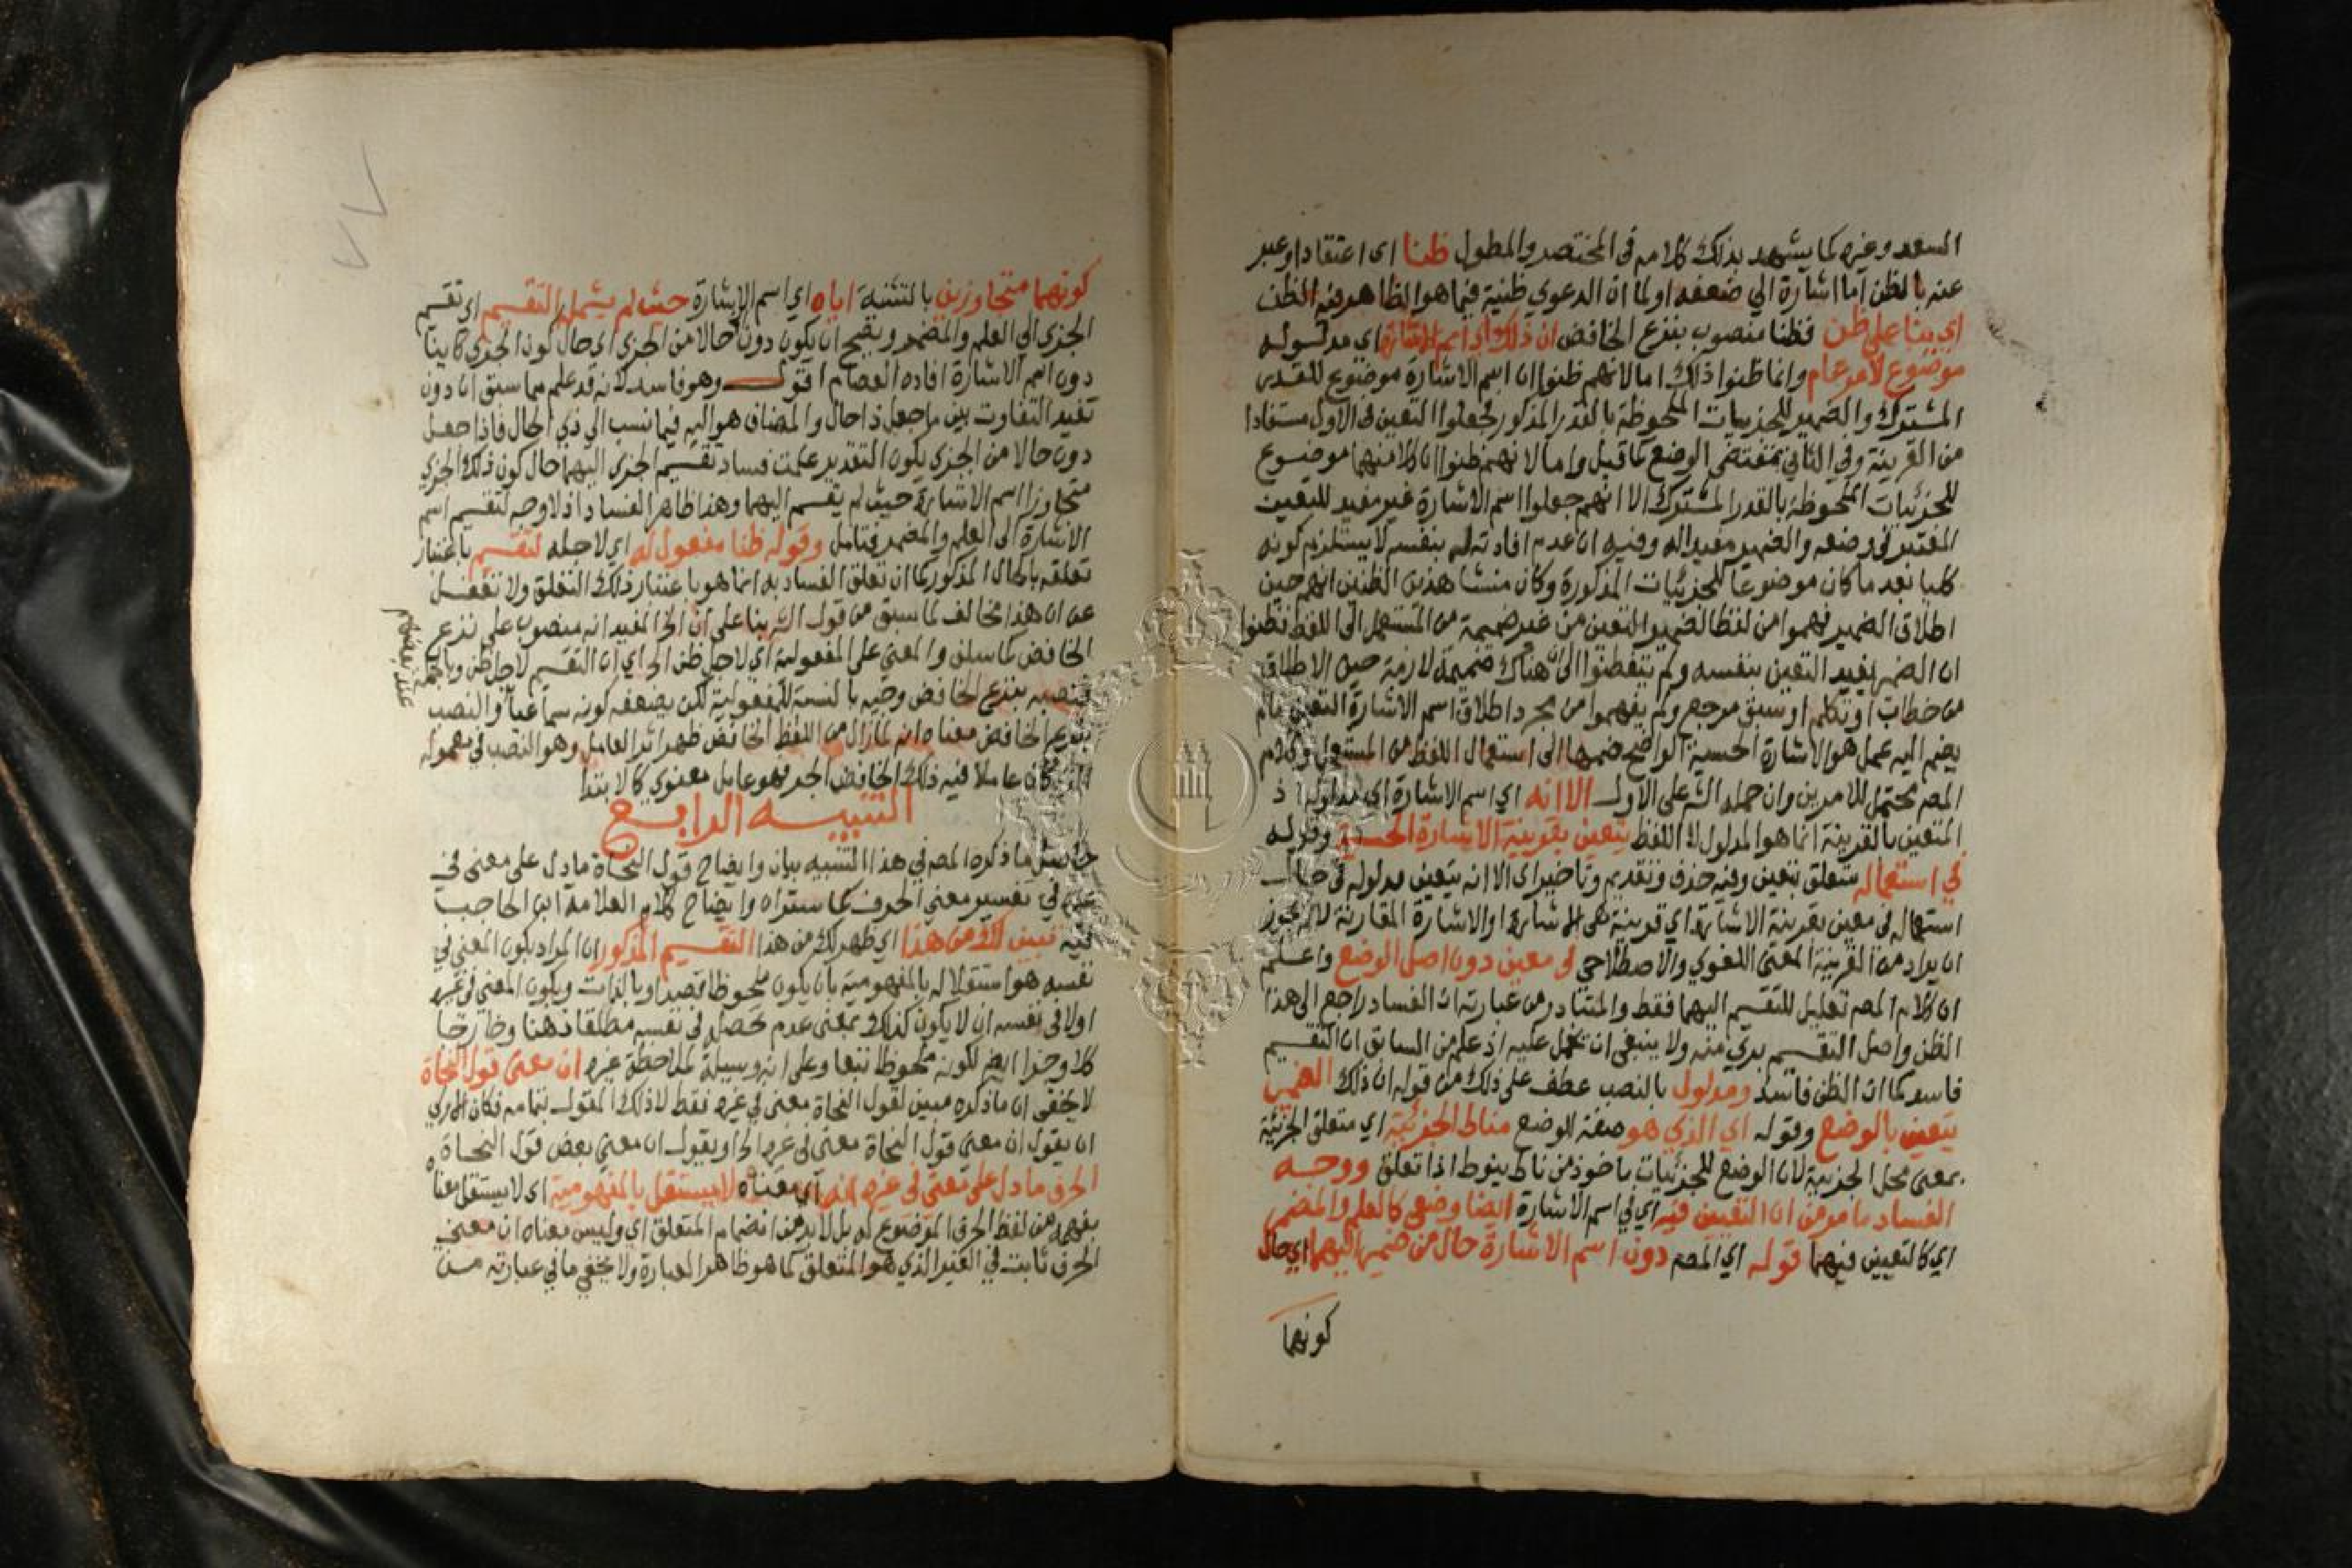 السعد وغيره كما يشهد بذلك كلامه في المختصر والمطول ظنا اى اعتقادا وعبر
عنه بالظن اما اشارة الي ضعفه او لما ان الدعوي ظنية فيما هو الظاهر فيه الظن
اي بينا علي ظن فظنا منصوب بنزع الخافض ان ذلك اي اسم الاشارة اى مدلوله
موضوع لامر عام وانما ظنوا ذلك اما لانهم ظنوا ان اسم الاشارة موضوع للقدر
المشترك والضمير للجزئيات الملحوظة بالقدر المذكور فجعلوا التعين في الاول مستفادا
من القرينة وفي الثاني بمقتضى الوضع كما قيل واما لانهم ظنوا ان كلا منهما موضوع
للجزئيات الملحوظة بالقدر المشترك الا انهم جعلوا اسم الاشارة غير مفيد للتعين
المعتبر في وضعه والضمير مفيدا له وفيه ان عدم افادته له بنفسه لا يستلزم كونه
كليا بعد ما كان موضوعا للجزئيات المذكورة وكان منشا هذين الظنين انهم حين
اطلاق الضمير فهموا من لفظ الضمير التعين من غير ضميمة من المستعمل الى اللفظ فظنوا
ان الضمير يفيد التعين بنفسه ولم يتفطنوا الى ان هناك ضميمة لازمة حين الاطلاق
من خطاب او تكلم او سبق مرجع ولم يفهموا من مجرد اطلاق اسم الاشارة التعين مالم
يضم اليه عمل هو الاشارة الحسية الواضح ضمها الى استعمال اللفظ من المستعمل وكلام
المصـ محتمل للامرين وان حمله الشـ على الاول الا انه اي اسم الاشارة اي مدلوله اذ
المتعين بالقرينة انما هو المدلول لا اللفظ يتعين بقرينة الاشارة الحسية وقوله
في استعماله متعلق بتعين وفيه حذف وتقديم وتاخير اى الا انه يتعين مدلوله في حال
استعماله في معين بقرينة الاشارة اي قرينة هى الاشارة او الاشارة المقارنة لانه يجوز
ان يراد من القرينة المعنى اللغوي والاصطلاحي في معين دون اصل الوضع واعلم
ان كلام المصـ تعليل للتقسيم اليهما فقط والمتبادر من عبارته ان الفساد راجع الى هذا
الظن واصل التقسيم بري منه ولا ينبغى ان يحمل عليه اذ علم من السابق ان التقسيم
فاسد كما ان الظن فاسد ومدلول بالنصب عطف على ذلك من قوله ان ذلك الضمير
يتعين بالوضع وقوله اي الذي هو صفة الوضع مناط الجزئية اي متعلق الجزئية
بمعنى محل الجزئية لان الوضع للجزئيات ماخوذ من ناط ينوط اذا تعلق ووجه
الفساد ما مر من ان التعيين فيه اي في اسم الاشارة ايضا وضعي كالعلم والمضمر
اي كالتعيين فيهما قوله اي المصـ دون اسم الاشارة حال من ضمير اليهما اي حال
كونهما
كونهما متجاوزين بالتثنية اياه اي اسم الاشارة حيث لم يشمله التقسيم اي تقسيم
الجزئي الي العلم والمضمر ويصح ان يكون دون حالا من الجزئي اي حال كون الجزئي كاينا
دون اسم الاشارة افاده العصام اقول وهو فاسد لانه قد علم مما سبق ان دون
تفيد التفاوت بين ما جعل ذا حال والمضاف هو اليه فيما نسب الي ذي الحال فاذا جعل
دون حالا من الجزئي يكون التقدير علمت فساد تقسيم الجزئي اليهما حال كون ذلك الجزئي
متجاوزا اسم الاشارة حيث لم يقسم اليهما وهذا ظاهر الفساد اذ لا وجه لتقسيم اسم
الاشارة الى العلم والمضمر فتامل وقوله ظنا مفعول له اي لاجله لتقسيم باعتبار
تعلقه بالحال المذكور كما ان تعلق الفساد به انما هو باعتبار ذلك التعلق ولا تغفل
عن ان هذا مخالف لما سبق من قول الشـ بنا على ان الخ المفيد انه منصوب على نزع
الخافض كما سلف والمعنى على المفعولية اي لاجل ظن الخ اي ان التقسيم لاجل ظن وبالجملة
فنصبه بنزع الخافض وجيه بالنسبة للمفعولية لكن يضعفه كونه سماعيا والنصب
عند بعضهم
بنزع الخافض معناه انه لما زال من اللفظ الخافض ظهر اثر العامل وهو النصب في معموله
الذي كان عاملا فيه ذلك الخافض الجر فهو عامل معنوي كالابتدا
التنبيه الرابع
حاصل ما ذكره المصـ في هذا التنبيه بيان وايضاح قول النحاة ما دل على معنى في
غيره في تفسير معنى الحرف كما ستراه وايضاح كلام العلامة ابن الحاجب
فيه تبين لك من هذا اي ظهر لك من هذا التقسيم المذكور ان المراد بكون المعنى في
نفسه هو استقلاله بالمفهومية بان يكون ملحوظا قصدا وبالذات وبكون المعنى في غيره
اولا في نفسه ان لا يكون كذلك بمعنى عدم تحصله في نفسه مطلقا ذهنا وخارجا
كلا وجزا ايضـ لكونه ملحوظا تبعا وعلى انه وسيلة لملاحظة غيره ان معنى قول النحاة
لا يخفى ان ما ذكره مبين لقول النحاة معنى في غيره فقط لا ذلك المقول بتمامه فكان الاولي
ان يقول ان معنى قول النحاة معنى في غيره الخ او يقول ان معنى بعض قول النحاة
الحرف ما دل على معنى في غيره انه اي معناه لا يستقل بالمفهومية اى لا يستقل معناه
بفهمه من لفظ الحرف الموضوع له بل لابد من انضمام المتعلق اي وليس معناه ان معنى
الحرف ثابت في الغير الذي هو المتعلق كما هو ظاهر العبارة ولا يخفي ما في عبارته من